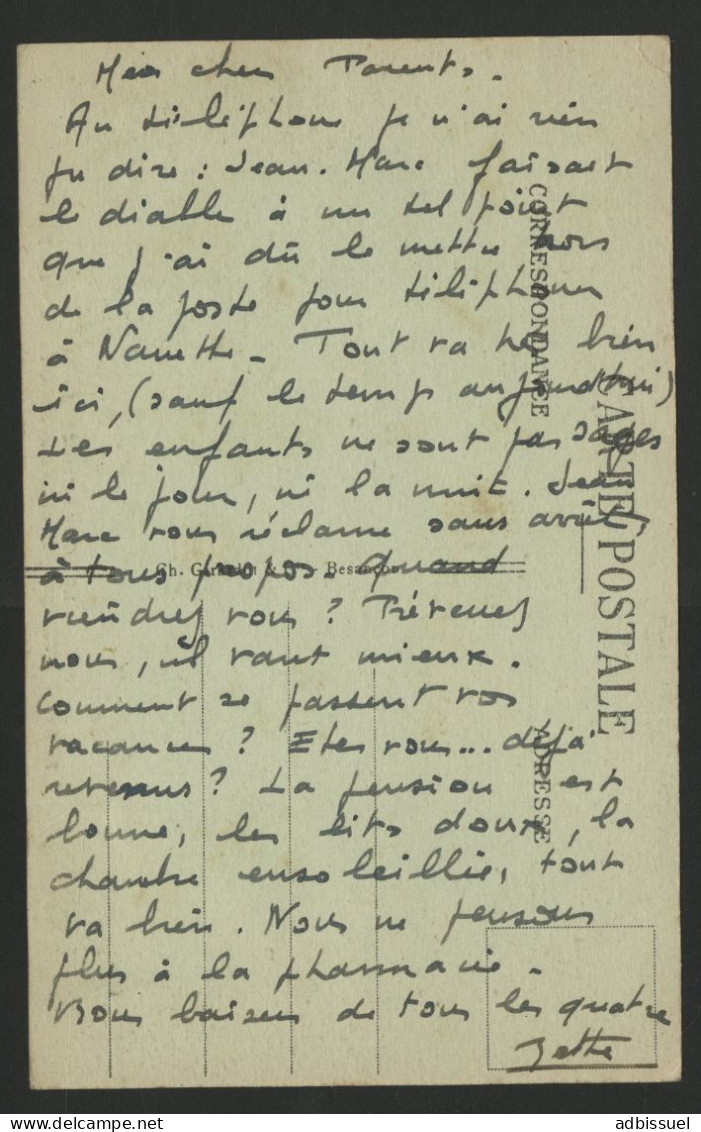 Mes chers Parents.
Au téléphone je n'ai rien
pu dire : Jean-Marc faisait
le diable à un tel point
que j'ai dû le mettre hors
de la poste pour téléphoner
à Nanette. Tout va très bien
ici, (sauf le temps aujourd'hui)
Les enfants ne sont pas sages
ni le jour, ni la nuit. Jean
Marc vous réclame sans arrêt
à tous propos. Quand
viendrez vous ? Prévenez
nous, il vaut mieux.
Comment se passent vos
vacances ? Etes vous... déjà
revenus ? La pension est
bonne, les lits doux, la
chambre ensoleillée, tout
va bien. Nous ne pensons
plus à la pharmacie.
Bons baisers de tous les quatre
CARTE POSTALE
CORRESPONDANCE
ADRESSE
Besançon
adbissuel